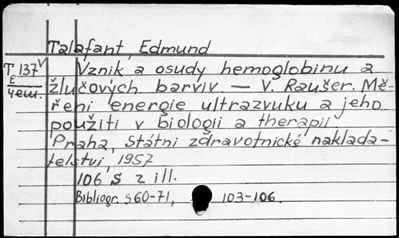 Talafant, Edmund
T 137V
E
4em.
Vznik a osudy hemoglobinu a
žlučových barviv. — V. Raušer. Mě-
ření energie ultrazvuku a jeho
použití v biologii a therapii
Praha, Státní zdravotnické naklada-
telství, 1957
106 s z ill.
Bibliogr. s 60-71, 103-106.